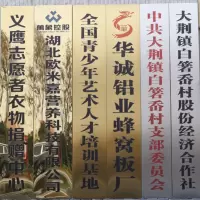 大荆镇白箬岙村股份经济合作社
中共大荆镇白箬岙村支部委员会
华诚铝业蜂窝板厂
全国青少年艺术人才培训基地
萬象控股
湖北欧米嘉营养科技有限公司
义鹰志愿者衣物捐赠中心